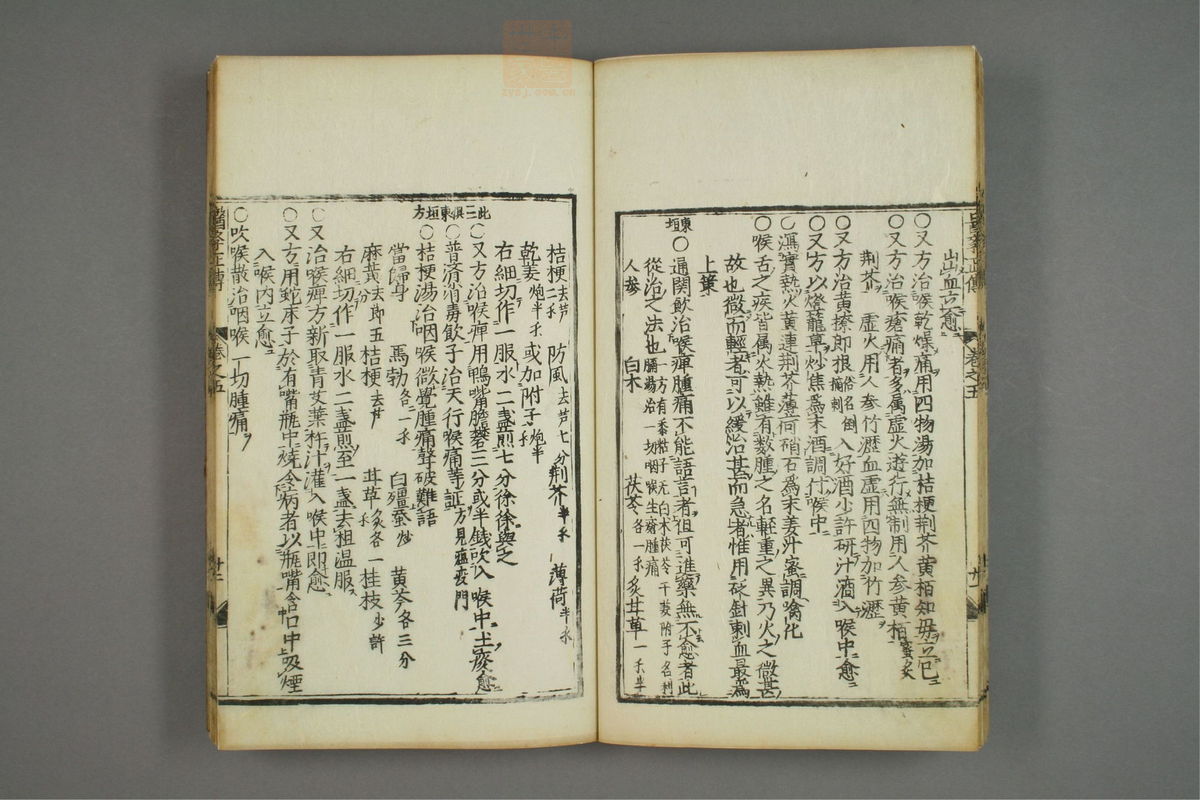 出血立愈
〇又方治喉乾燥痛用四物湯加桔梗荊芥黄栢知母立已
〇又方治喉瘡痛者多属虚火遊行無制用人参黄栢蜜炙
荊芥 虚火用人参竹瀝血虚用四物加竹瀝
〇又方治黄捺即根俗名倒摘刺入好酒少許研汁滴入喉中愈
〇又方以燈籠草炒焦為末酒調付喉中
〇瀉實熱火黄連荊芥薄荷硝石為末姜汁蜜調噙化
〇喉舌之疾皆属火熱雖有数腫之名軽重之異乃火之微甚
故也微而輕者可以緩治甚而急者惟用砭針刺血最為
上策
東垣〇通關飲治喉痺腫痛不能語言者但可進藥無不愈者此
從治之法也一方有黍粘子无白术茯苓干姜附子名利膈湯治一切咽喉生瘡腫痛
人参 白木 茯苓各一錢 炙甘草一錢半
桔梗去芦二錢 防風去芦七分 荊芥半錢 薄荷半錢
乾姜炮半錢 或加附子炮半錢
右細切作一服水二盞煎七分徐徐與之
〇又方治喉痺用鴨嘴膽礬三分或半錢吹入喉中土痰愈
此三俱東垣方〇普済消毒飲子治天行喉痛等証方見瘟疫門
〇桔梗湯治咽喉微覺腫痛聲破難語
當歸身 馬勃各一錢 白殭蚕炒 黄芩各三分
麻黄去節五分 桔梗去芦 甘草炙各一錢 桂枝少許
右細切作一服水二盞煎至一盞去租温服
〇又治喉痺方新取青艾葉杵汁灌入喉中即愈
〇又方用蛇床子於有嘴瓶中燒令病者以瓶嘴含口中吸煙
入喉内立愈
〇吹喉散治咽喉一切腫痛
巻之五
廿二
zysj.com.cn